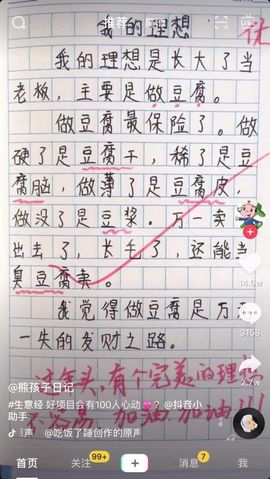 推荐
我的理想
优
我的理想是长大了当
老板，主要是做豆腐。
做豆腐最保险了。做
硬了是豆腐干，稀了是豆
腐脑，做薄了是豆腐皮，
做没了是豆浆。万一卖
出去了，长毛了，还能当
臭豆腐卖。
我觉得做豆腐是万
一失的发财之路。
这年头，有个完美的理想
加油，加油!!!
14.8w
1158
2.7w
@熊孩子日记
#生意经 好项目会有100人心动 @抖音小
助手
@吃饭了踵创作的原声
首页
关注
99+
消息
7
我